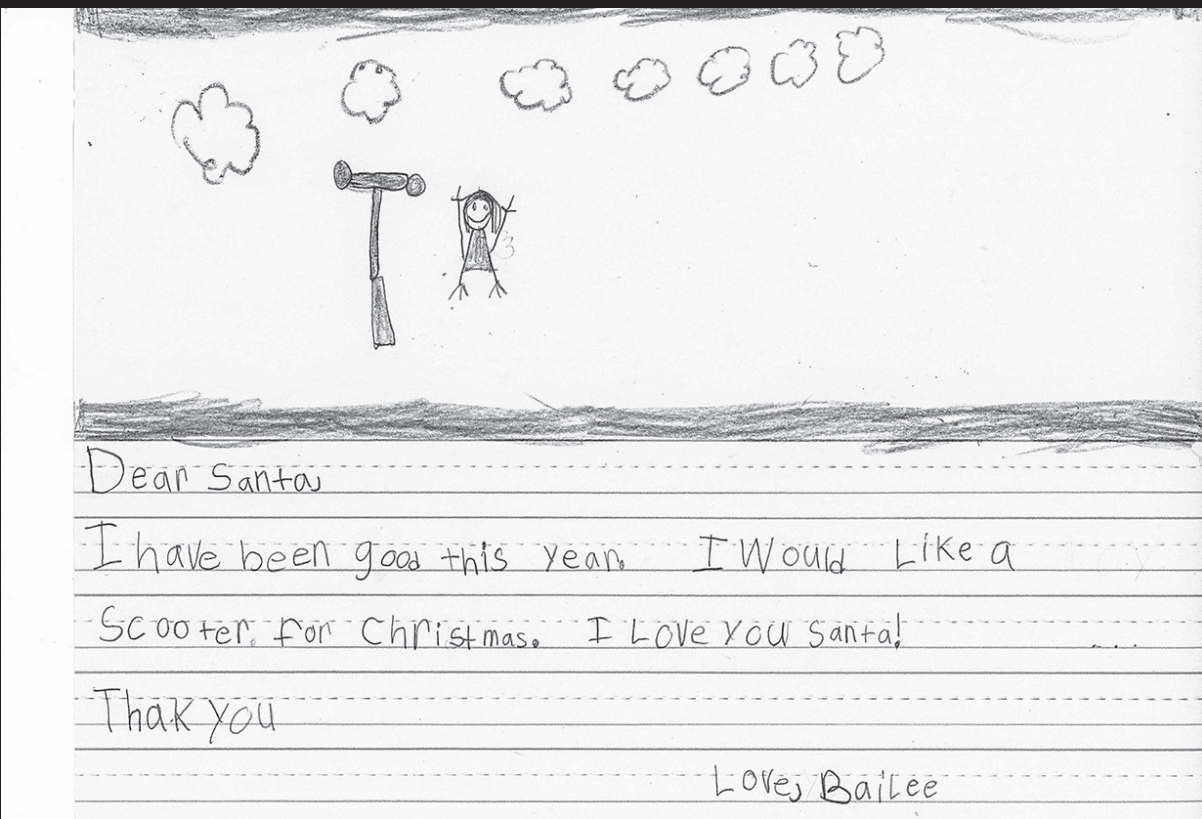 Dear Santa,
I have been good this year. I Would Like a
Scooter for Christmas. I Love you Santa!
Thak you
Love, Bailee